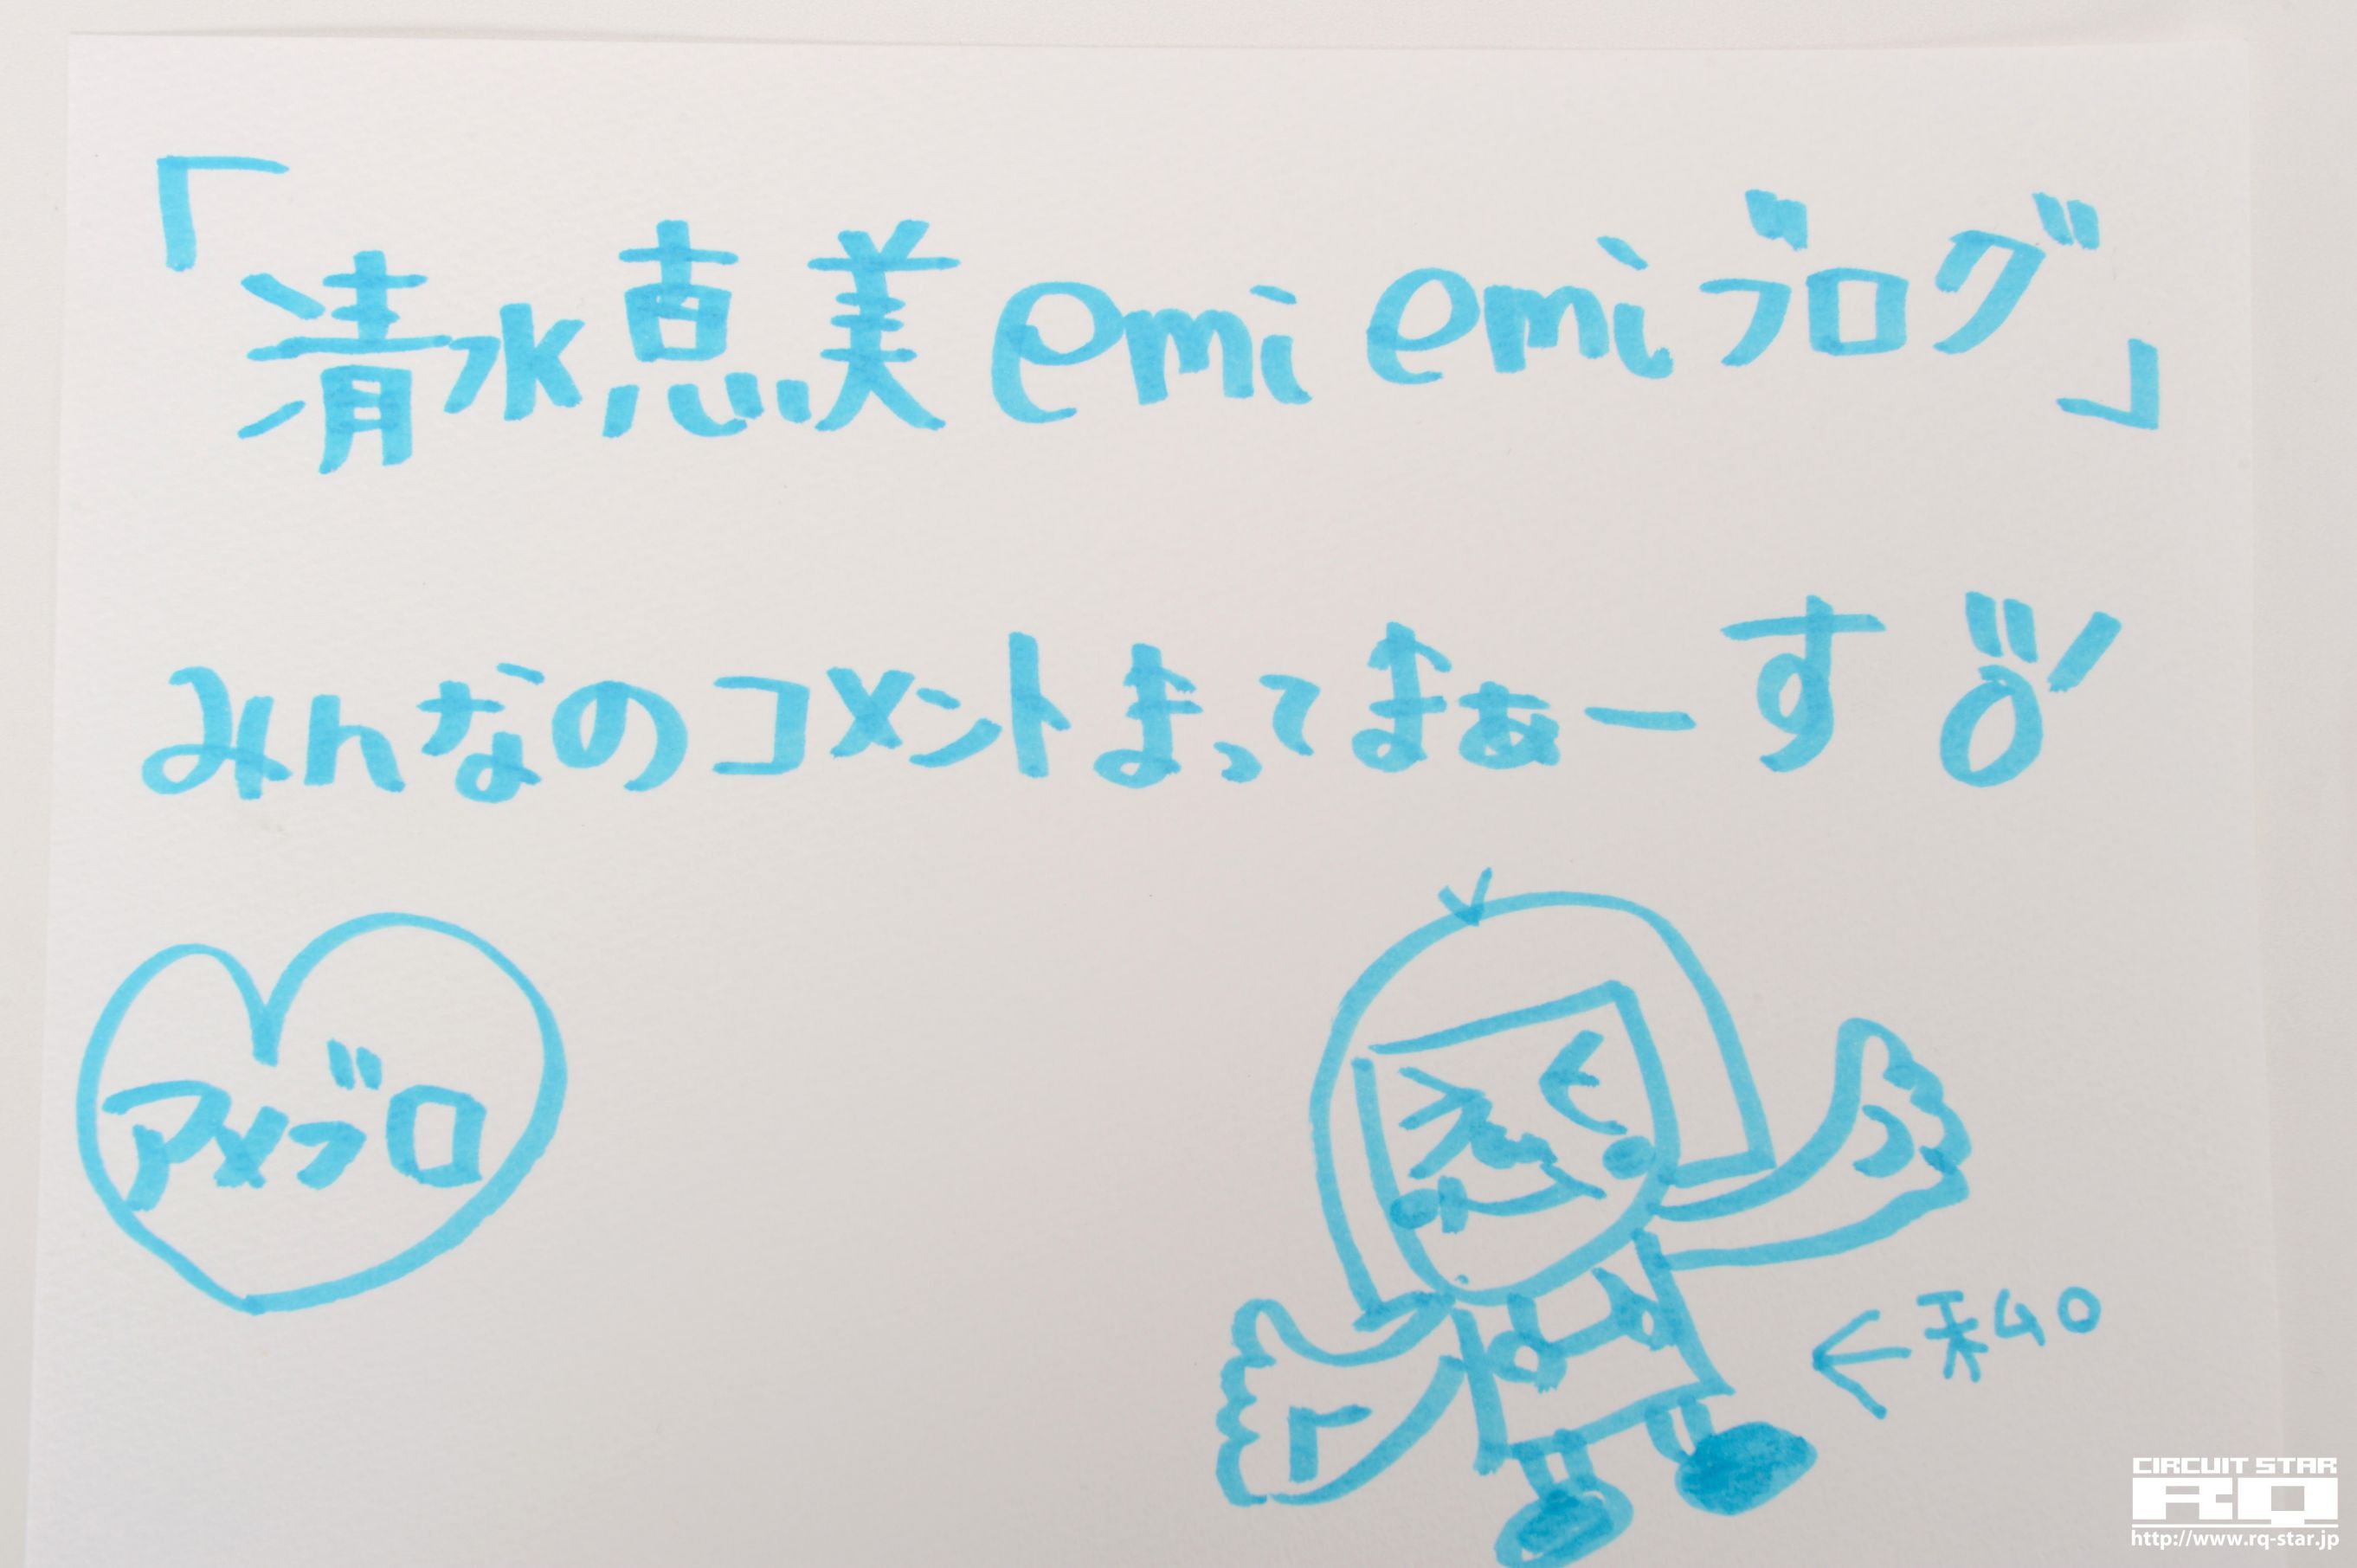 「清水恵美emi emiブログ」
みんなのコメントまってまぁーす
アメブロ
CIRCUIT STAR
RQ
http://www.rq-star.jp